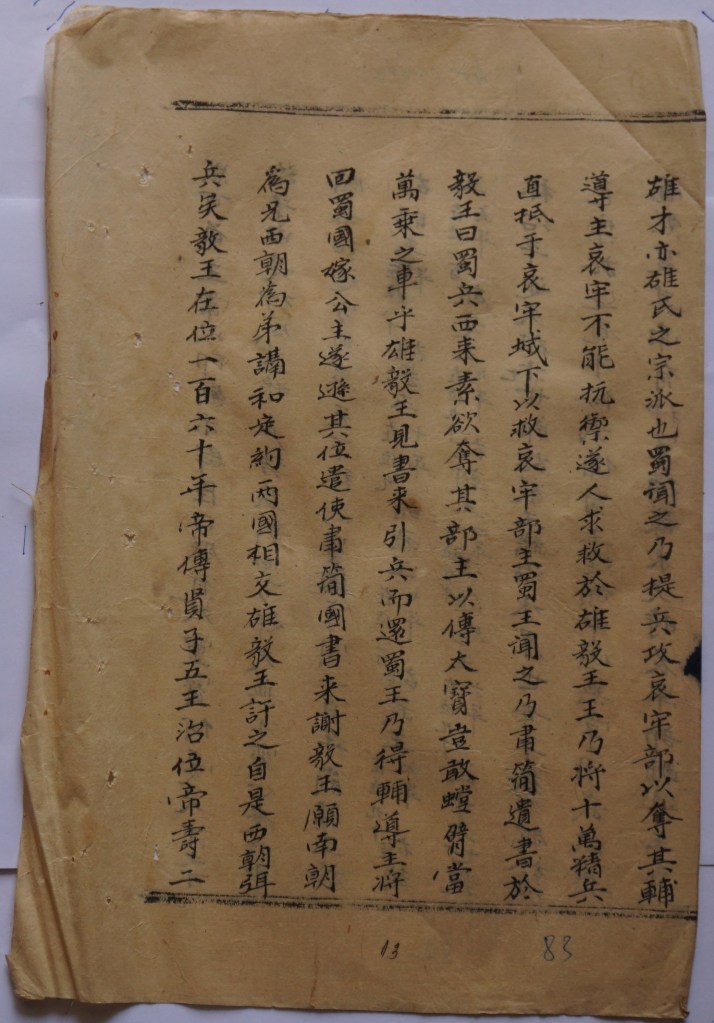 雄才亦雄氏之宗派也蜀闻之乃提兵攻哀牢部以奪其輔
導主哀牢不能抗禦遂人求救於雄毅王王乃将十萬精兵
直抵于哀牢城下以救哀牢部主蜀王闻之乃肅簡遺書於
毅王曰蜀兵西来素欲奪其部主以傳大寶豈敢螳臂當
萬乗之車乎雄毅王見書来引兵而還蜀王乃得輔導主将
回蜀國嫁公主遂遜其位遣使肅簡國書来謝毅王願南朝
為兄西朝為弟講和定約两國相交雄毅王許之自是西朝弭
兵矣毅王在位一百六十年帝傳貭子五王治位帝壽二
13
83